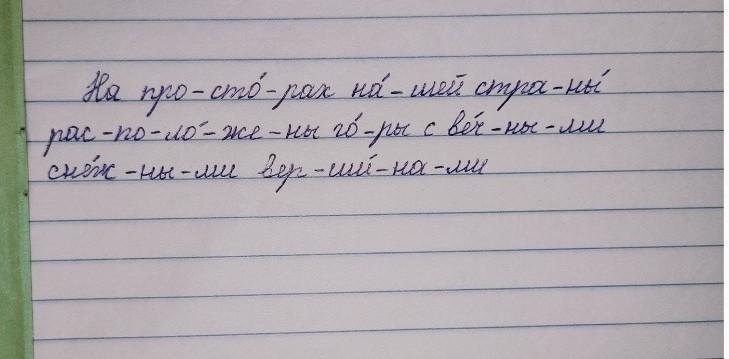 На про-сто́-рах на́-шей стра-ны́
рас-по-ло́-же-ны го́-ры с ве́ч-ны-ми
сне́ж-ны-ми вер-ши́-на-ми